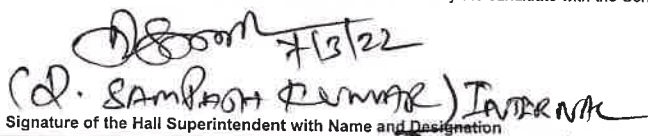 candidate with the
7/3/22
(D. SAMPATH KUMAR) INTERNAL
Signature of the Hall Superintendent with Name and Designation